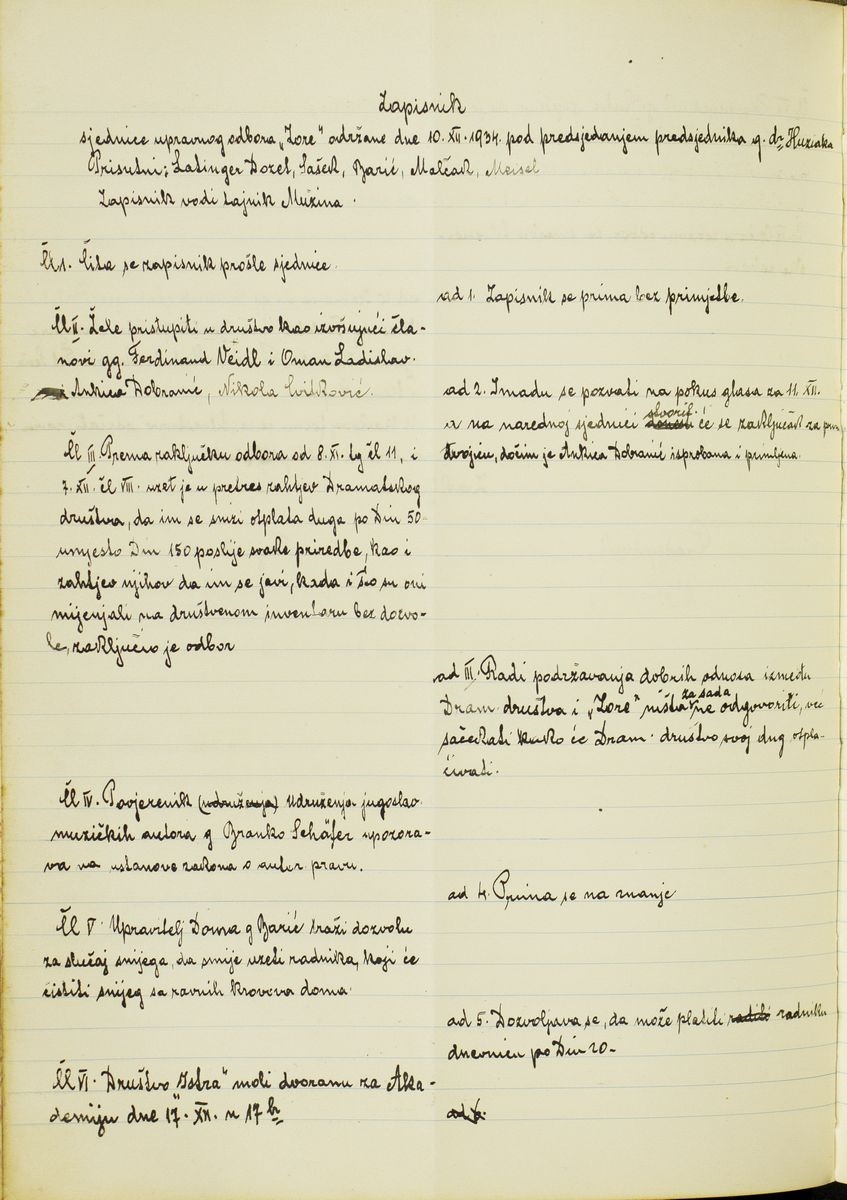 Zapisnik
sjednice upravnog odbora „Zore" održane dne 10.XII.1934. pod predsjedanjem predsjednika g. dr Huziaka
Prisutni: Latinger Dozet, Sašek, Barić, Malčak, Meisel
Zapisnik vodi tajnik Mužina.
Čl 1. Čita se zapisnik prošle sjednice.
ad 1. Zapisnik se prima bez primjetbe.
Čl II. Žele pristupiti u društvo kao izvršujući čla-
novi gg. Ferdinand Veidl i Oman Ladislav.
i Ankica Dobranić, Nikola Cvitković.
ad 2. Imadu se pozvati na pokus glasa za 11. XII.
a na narednoj sjednici stvorit će se zaključak za prvu
dvojicu, dočim je Ankica Dobranić isprobana i primljena.
Čl III. Prema zaključku odbora od 8. XI. tg čl 11, i
7. XII. čl VIII. uzet je u pretres zahtjev Dramatskog
društva, da im se snizi otplata duga po Din 50
umjesto Din 150 poslije svake priredbe, kao i
zahtjev njihov da im se javi, kada i što su oni
mijenjali na društvenom inventaru bez dozvo-
le, zaključio je odbor
ad III. Radi podržavanja dobrih odnosa između
Dram. društva i „Zore" ništa za sada ne odgovoriti, već
sačekati kako će Dram. društvo svoj dug otpla-
ćivati.
Čl IV. Povjerenik (udruženja) Udruženja jugoslav.
muzičkih autora g Branko Schäfer upozora-
va na ustanove zakona o autor pravu.
ad 4. Prima se na znanje
Čl V. Upravitelj Doma g Barić traži dozvolu
za slučaj snijega, da smije uzeti radnika, koji će
čistiti snijeg sa ravnih krovova doma.
ad 5. Dozvoljava se, da može platiti radniku
dnevnicu po Din 20.-
Čl VI. Društvo „Istra" moli dvoranu za Aka-
demiju dne 17. XII. u 17 h
ad 6.